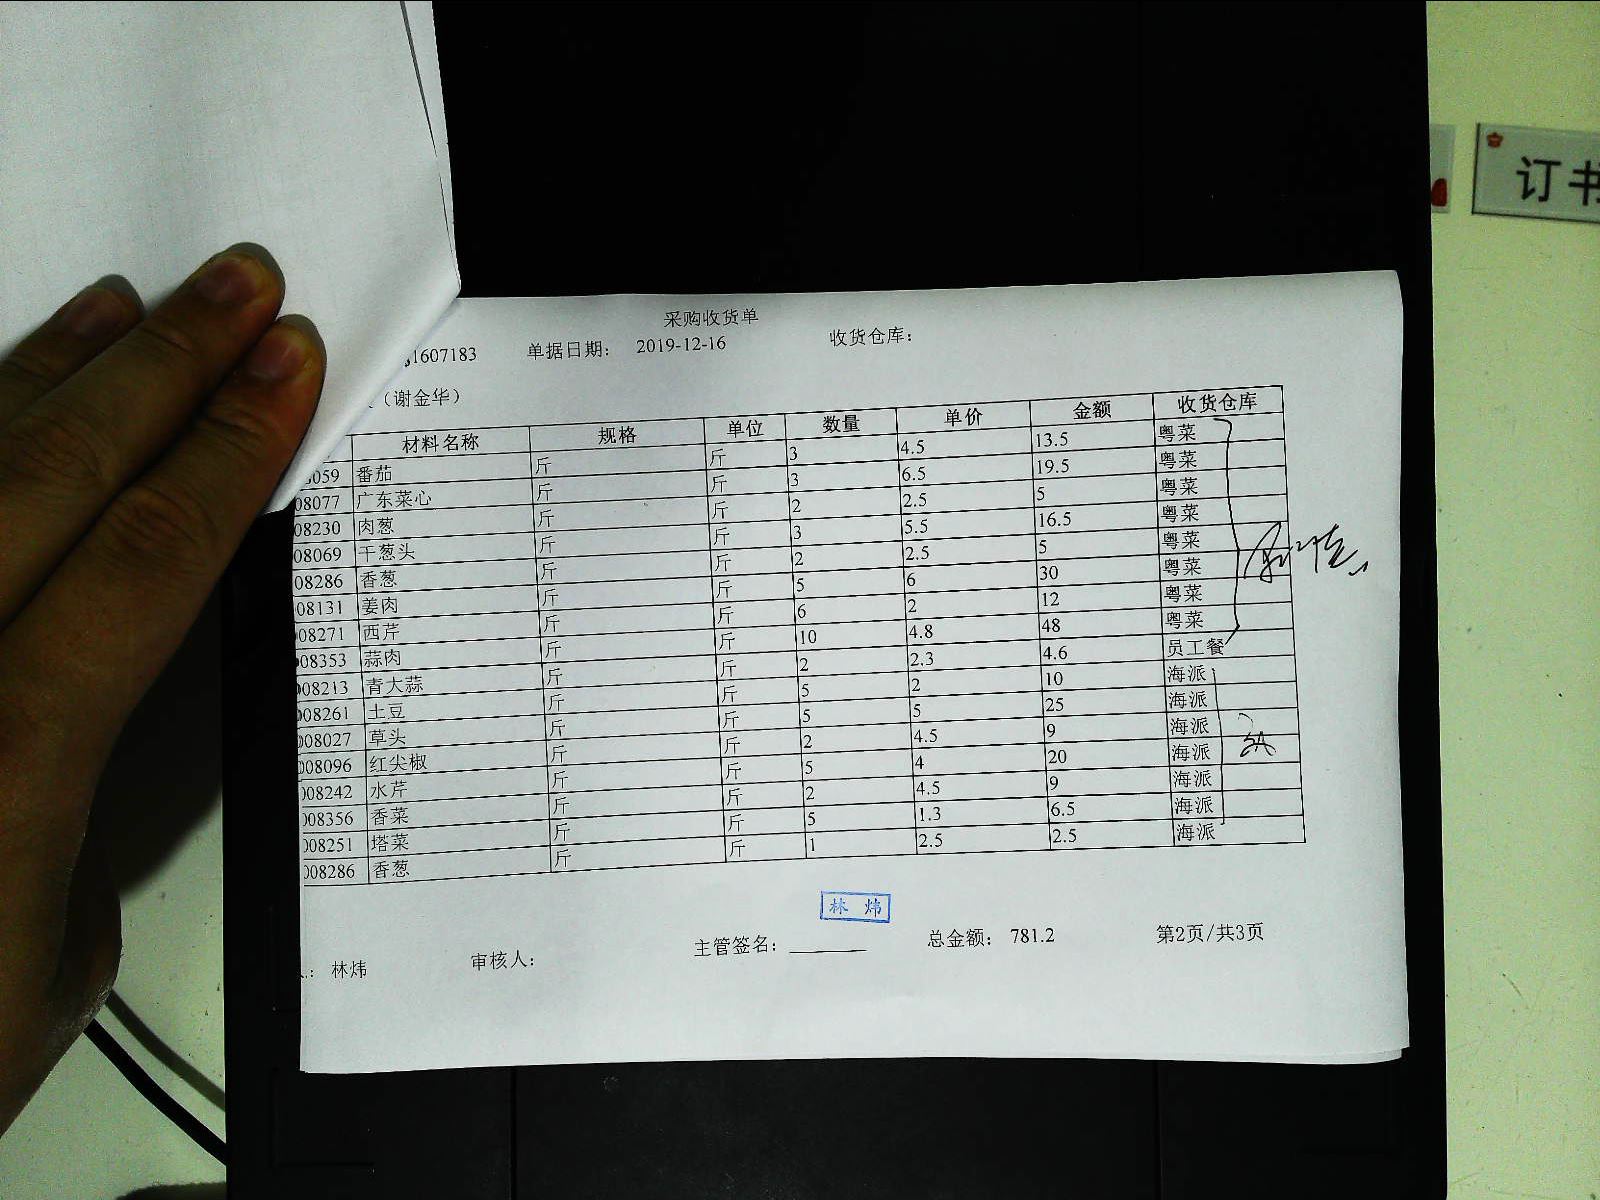 采购收货单
1607183 单据日期: 2019-12-16 收货仓库:
(谢金华)
材料名称 规格 单位 数量 单价 金额 收货仓库
059 番茄 斤 斤 3 4.5 13.5 粤菜
08077 广东菜心 斤 斤 3 6.5 19.5 粤菜
08230 肉葱 斤 斤 2 2.5 5 粤菜
08069 干葱头 斤 斤 3 5.5 16.5 粤菜
08286 香葱 斤 斤 2 2.5 5 粤菜
08131 姜肉 斤 斤 5 6 30 粤菜
08271 西芹 斤 斤 6 2 12 粤菜
08353 蒜肉 斤 斤 10 4.8 48 粤菜
08213 青大蒜 斤 斤 2 2.3 4.6 员工餐
08261 土豆 斤 斤 5 2 10 海派
008027 草头 斤 斤 5 5 25 海派
008096 红尖椒 斤 斤 2 4.5 9 海派
008242 水芹 斤 斤 5 4 20 海派
008356 香菜 斤 斤 2 4.5 9 海派
008251 塔菜 斤 斤 5 1.3 6.5 海派
008286 香葱 斤 斤 1 2.5 2.5 海派
林 炜
: 林炜 审核人: 主管签名: 总金额: 781.2 第2页/共3页
订书